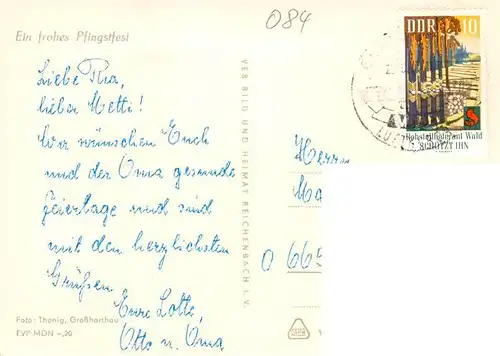 084
Ein frohes Pfingstfest
Liebe Ria,
lieber Metti!
Wir wünschen Euch
und der Oma gesunde
Feiertage und sind
mit den herzlichsten
Grüßen
Eure Lotte,
Otto u. Oma
Foto: Thonig, Großharthau
EVP MDN -,20
VEB BILD UND HEIMAT REICHENBACH I. V.
DDR 10
Rohstofflieferant Wald
SCHÜTZT IHN
Herrn
Ma
O 665